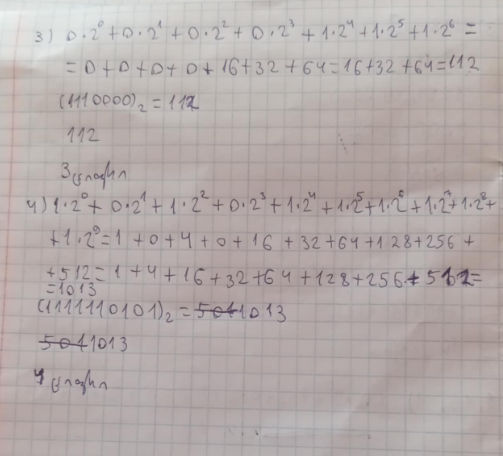 3) 0·2⁰ + 0·2¹ + 0·2² + 0·2³ + 1·2⁴ + 1·2⁵ + 1·2⁶ =
= 0 + 0 + 0 + 0 + 16 + 32 + 64 = 16 + 32 + 64 = 112
(1110000)₂ = 112
112
4) 1·2⁰ + 0·2¹ + 1·2² + 0·2³ + 1·2⁴ + 1·2⁵ + 1·2⁶ + 1·2⁷ + 1·2⁸ +
+ 1·2⁹ = 1 + 0 + 4 + 0 + 16 + 32 + 64 + 128 + 256 +
+ 512 = 1 + 4 + 16 + 32 + 64 + 128 + 256 + 512 =
= 1013
(1111110101)₂ = 1013
1013